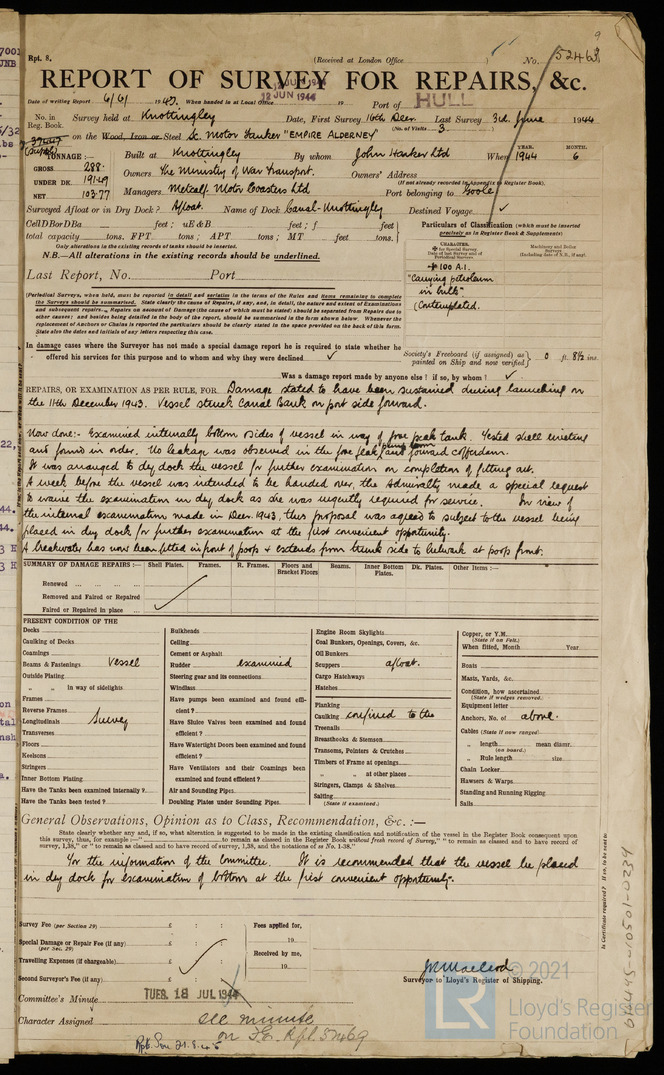 9
Rpt. 8.
(Received at London Office )
No. 52463
REPORT OF SURVEY FOR REPAIRS, &c.
12 JUN 1944
Date of writing Report 6/6/ 19 When handed in at Local Office 19 Port of HULL
No. in Reg. Book.
Survey held at Knottingley Date, First Survey 16th Dec. Last Survey 3rd June 1944
(No. of Visits 3 )
on the Wood, Iron or Steel Sc. Motor Tanker "EMPIRE ALDERNEY"
TONNAGE :—
GROSS 288.
UNDER DK. 191.49
NET 103.77
Built at Knottingley By whom John Harker Ltd When YEAR. 1944 MONTH. 6
Owners The Ministry of War Transport. Owners' Address
(If not already recorded in Appendix to Register Book).
Managers Metcalf Motor Coasters Ltd Port belonging to Goole
Surveyed Afloat or in Dry Dock? Afloat. Name of Dock Canal-Knottingley Destined Voyage
CellDBorDBa feet; uE&B feet; f feet
total capacity tons. FPT tons; APT tons; MT feet tons.
Only alterations in the existing records of tanks should be inserted.
N.B.—All alterations in the existing records should be underlined.
Particulars of Classification (which must be inserted
precisely as in Register Book & Supplements)
CHARACTER.
for Special Survey.
Date of last Survey and of Periodical Surveys
Machinery and Boiler Surveys
(Including date of N.B., if any)
+ 100 A.1.
"Carrying petroleum
in bulk"
(Contemplated.
Last Report, No. Port
(Periodical Surveys, when held, must be reported in detail and seriatim in the terms of the Rules and items remaining to complete
the Surveys should be summarised. State clearly the cause of Repairs, if any, and, in detail, the nature and extent of Examinations
and subsequent repairs. Repairs on account of Damage (the cause of which must be stated) should be separated from Repairs due to
other causes; and besides being detailed in the body of the report, should be summarised in the form shewn below. Whenever the
replacement of Anchors or Chains is reported the particulars should be clearly stated in the space provided on the back of this form.
State also the dates and initials of any letters respecting this case.
In damage cases where the Surveyor has not made a special damage report he is required to state whether he
offered his services for this purpose and to whom and why they were declined
Society's Freeboard (if assigned) as painted on Ship and now verified 0 ft. 8½ ins.
Was a damage report made by anyone else? if so, by whom?
REPAIRS, OR EXAMINATION AS PER RULE, FOR Damage stated to have been sustained during launching on
the 11th December 1943. Vessel struck Canal Bank on port side forward.
Now done:- Examined internally bottom sides of vessel in way of fore peak tank. Tested shell riveting
and found in order. No leakage was observed in the fore peak, and forward cofferdam.
It was arranged to dry dock the vessel for further examination on completion of fitting out.
A week before the vessel was intended to be handed over, the Admiralty made a special request
to waive the examination in dry dock as she was urgently required for service. In view of
the internal examination made in Decr. 1943, this proposal was agreed to subject to the vessel being
placed in dry dock for further examination at the first convenient opportunity.
A breakwater has now been fitted in front of poop & extends from trunk side to bulwark at poop front.
SUMMARY OF DAMAGE REPAIRS :— Shell Plates. Frames. R. Frames. Floors and Bracket Floors Beams. Inner Bottom Plates. Dk. Plates. Other Items :—
Renewed
Removed and Faired or Repaired
Faired or Repaired in place
PRESENT CONDITION OF THE
Decks
Caulking of Decks
Coamings
Beams & Fastenings Vessel
Outside Plating
" " in way of sidelights
Frames
Reverse Frames
Longitudinals Survey
Transverses
Floors
Keelsons
Stringers
Inner Bottom Plating
Have the Tanks been examined internally?
Have the Tanks been tested?
Bulkheads
Ceiling
Cement or Asphalt
Rudder examined
Steering gear and its connections
Windlass
Have pumps been examined and found efficient?
Have Sluice Valves been examined and found efficient?
Have Watertight Doors been examined and found efficient?
Have Ventilators and their Coamings been examined and found efficient?
Air and Sounding Pipes
Doubling Plates under Sounding Pipes
Engine Room Skylights
Coal Bunkers, Openings, Covers, &c.
Oil Bunkers
Scuppers afloat.
Cargo Hatchways
Hatches
Planking
Caulking confined to the
Treenails
Breasthooks & Stemson
Transoms, Pointers & Crutches
Timbers of Frame at openings
" " at other places
Stringers, Clamps & Shelves
Salting
(State if examined.)
Copper, or Y.M.
(State if on Felt.)
When fitted, Month Year
Boats
Masts, Yards, &c.
Condition, how ascertained
(State if wedges removed.)
Equipment letter
Anchors, No. of above.
Cables (State if now ranged)
" length mean diamr.
(on board.)
" Rule length size
Chain Locker
Hawsers & Warps
Standing and Running Rigging
Sails
General Observations, Opinion as to Class, Recommendation, &c. :—
State clearly whether any and, if so, what alteration is suggested to be made in the existing classification and notification of the vessel in the Register Book consequent upon
For the information of the Committee. It is recommended that the vessel be placed
in dry dock for examination of bottom at the first convenient opportunity.
Survey Fee (per Section 29) £ : :
Special Damage or Repair Fee (if any) £ : :
(per Sec. 29)
Travelling Expenses (if chargeable) £ : :
Second Surveyor's Fee (if any) £ : :
Fees applied for,
19
Received by me,
19
Surveyor to Lloyd's Register of Shipping.
Committee's Minute TUES. 18 JUL 1944
Character Assigned see minute
on F.E. Rpt. 52469
© 2021
Lloyd's Register
Foundation